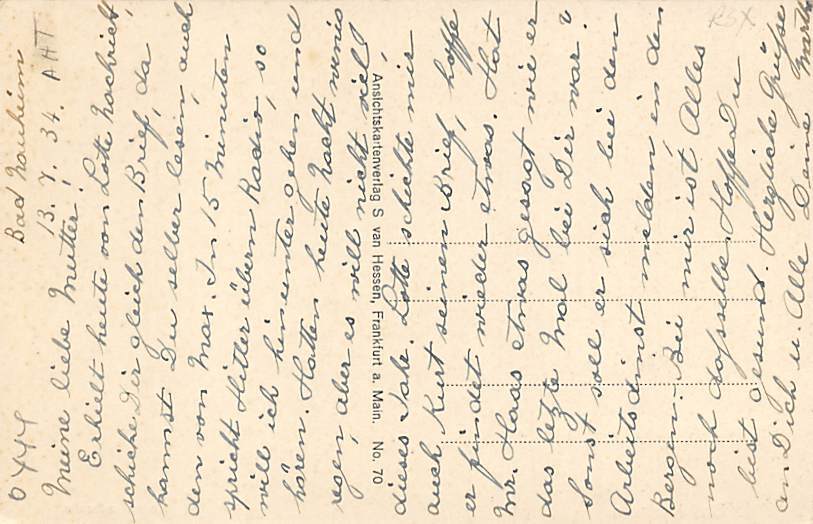 Bad Nauheim
13. 7. 34. AHT
Meine liebe Mutter!
Erhielt heute von Lotte Nachricht,
schicke Dir gleich den Brief, da
kannst Du selber lesen, auch
den von Max. In 15 Minuten
spricht Hitler übern Radio, so
will ich hinunter gehen und
hören. Hatten heute Nacht wenig
regen, aber es will nicht viel
dieses Jahr. Lotte schickte mir
auch Kurt seinen Brief, hoffe
er findet wieder etwas. Hat
Mr. Haas etwas gesagt wie er
das letzte Mal bei Dir war?
Sonst soll er sich bei den
Arbeitsdinst melden in den
Bergen. Bei mir ist Alles
noch dasselbe. Hoffe Du
bist gesund. Herzliche Grüsse
an Dich u. Alle Deine Martha
Ansichtskartenverlag S van Hessen, Frankfurt a. Main. No. 70
RSX